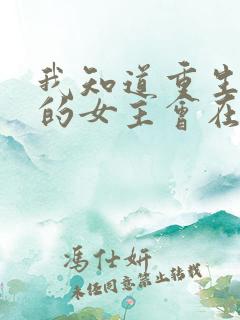 我知道重生
的女主会在
冯仕妍
未经同意禁止转载